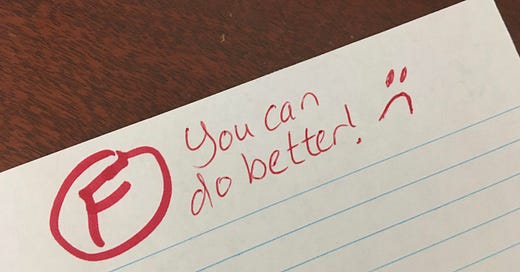 F
You can
do better!